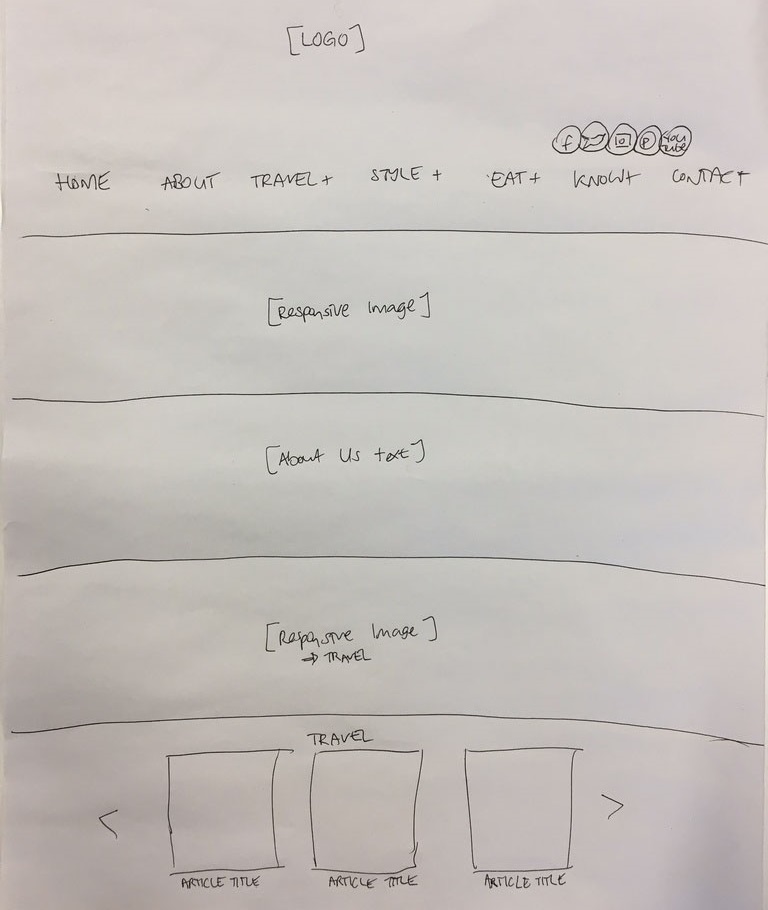 [LOGO]
f P You Tube
HOME ABOUT TRAVEL+ STYLE + EAT+ KNOW+ CONTACT
[Responsive Image]
[About Us text]
[Responsive Image]
⇒ TRAVEL
TRAVEL
< >
ARTICLE TITLE ARTICLE TITLE ARTICLE TITLE